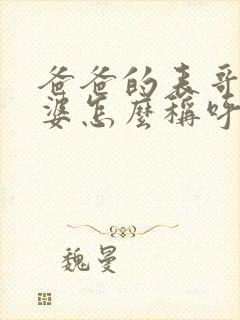 爸爸的表哥
婆怎麼稱呼
魏曼